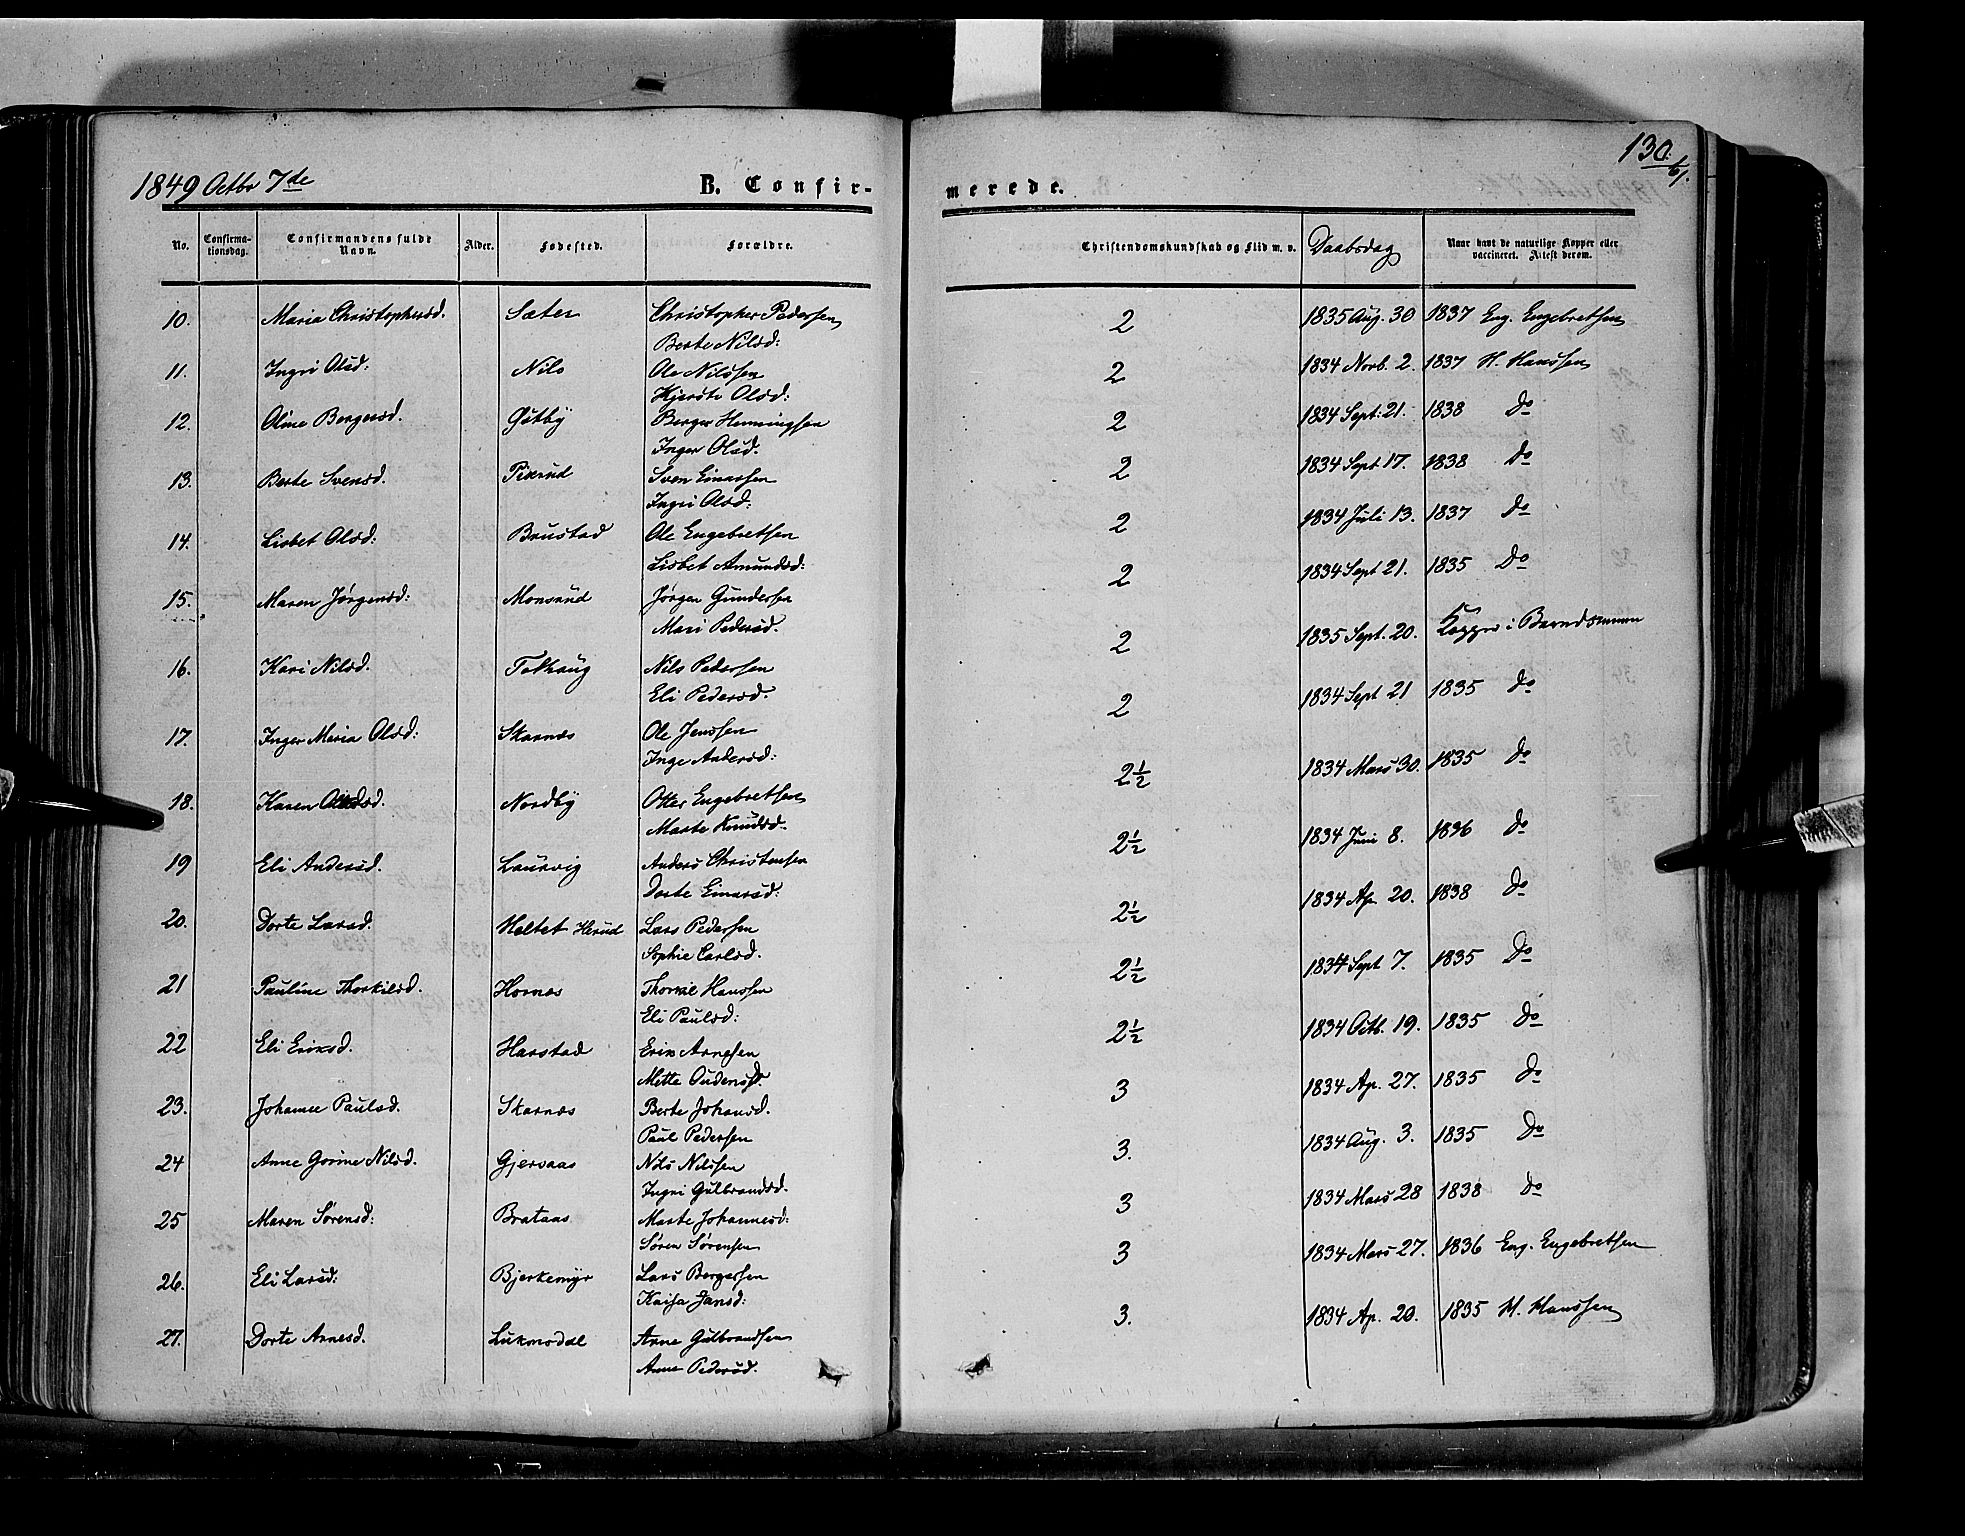 130.
61.
1849 Octbr 7de
B. Confir-
merede.
No. Confirma-tionsdag. Confirmandens fulde Navn. Alder. Fødested. Forældre. Christendomskundskab og Flid m. v. Daabsdag Naar havt de naturlige Kopper eller vaccineret. Attest derom.
10. Maria Christophersd. Sæter Christopher Pedersen 2 1835 Aug. 30 1837 Eng. Engebretsen
Berte Nilsd:
11. Ingri Olsd: Nils Ole Nilssen 2 1834 Novb. 2. 1837 H. Hanssen
Kjersti Olsd:
12. Oline Bergersd. Østby Berger Hemmingsen 2 1834 Sept: 21. 1838 Do
Inger Olsd.
13. Berte Svensd. Pikrud Sven Einarsen 2 1834 Sept 17. 1838 Do
Ingri Olsd:
14. Lisbet Olsd: Brustad Ole Engebretsen 2 1834 Juli 13. 1837 Do
Lisbet Amundsd:
15. Maren Jørgensd: Monsrud Jørgen Gundersen 2 1834 Sept 21. 1835 Do
Mari Pedersd.
16. Kari Nilsd. Nils Pedersen 2 1835 Sept. 20. Kopper i Barndommen
Eli Pedersd.
17. Inger Maria Olsd: Skarnæs Ole Jenssen 2 1834 Sept 21 1835 Do
Inge Andersd:
18. Karen Nordby Otter Engebretsen 2½ 1834 Mars 30. 1835 Do
Marte Knudsd.
19 Eli Andersd. Laurvig Anders Christensen 2½ 1834 Juni 8. 1836 Do
Dorte Einarsd.
20. Dorte Larsd. Holtet Herud Lars Pedersen 2½ 1834 Ap. 20. 1838 Do
Sophie Carlsd.
21 Pauline Thorkilsd. Hornæs Thorkil Hanssen 2½ 1834 Sept 7. 1835 Do
Eli Paulsd:
22 Eli Eriksd. Harstad Erik Arnesen 2½ 1834 Octb. 19. 1835 Do
Mette Oudensd.
23. Johanne Paulsd. Skarnæs Berte Johansd. 3 1834 Ap. 27. 1835 Do
Paul Pedersen
24 Anne Gorine Nilsd. Gjersaas Nils Nilssen 3. 1834 Aug. 3. 1835 Do
Ingri Gulbrandsd.
25 Maren Sørensd: Brataas Marte Johannesd: 3 1834 Mars 28 1838 Do
Søren Sørensen
26. Eli Larsd: Bjerkemyr Lars Bergersen 3 1834 Mars 27. 1836 Eng. Engebretsen
Kaisa Jansd:
27. Dorte Arnesd. Arne Gulbrandsen 3. 1834 Ap. 20. 1835 H. Hanssen
Anne Pedersd.